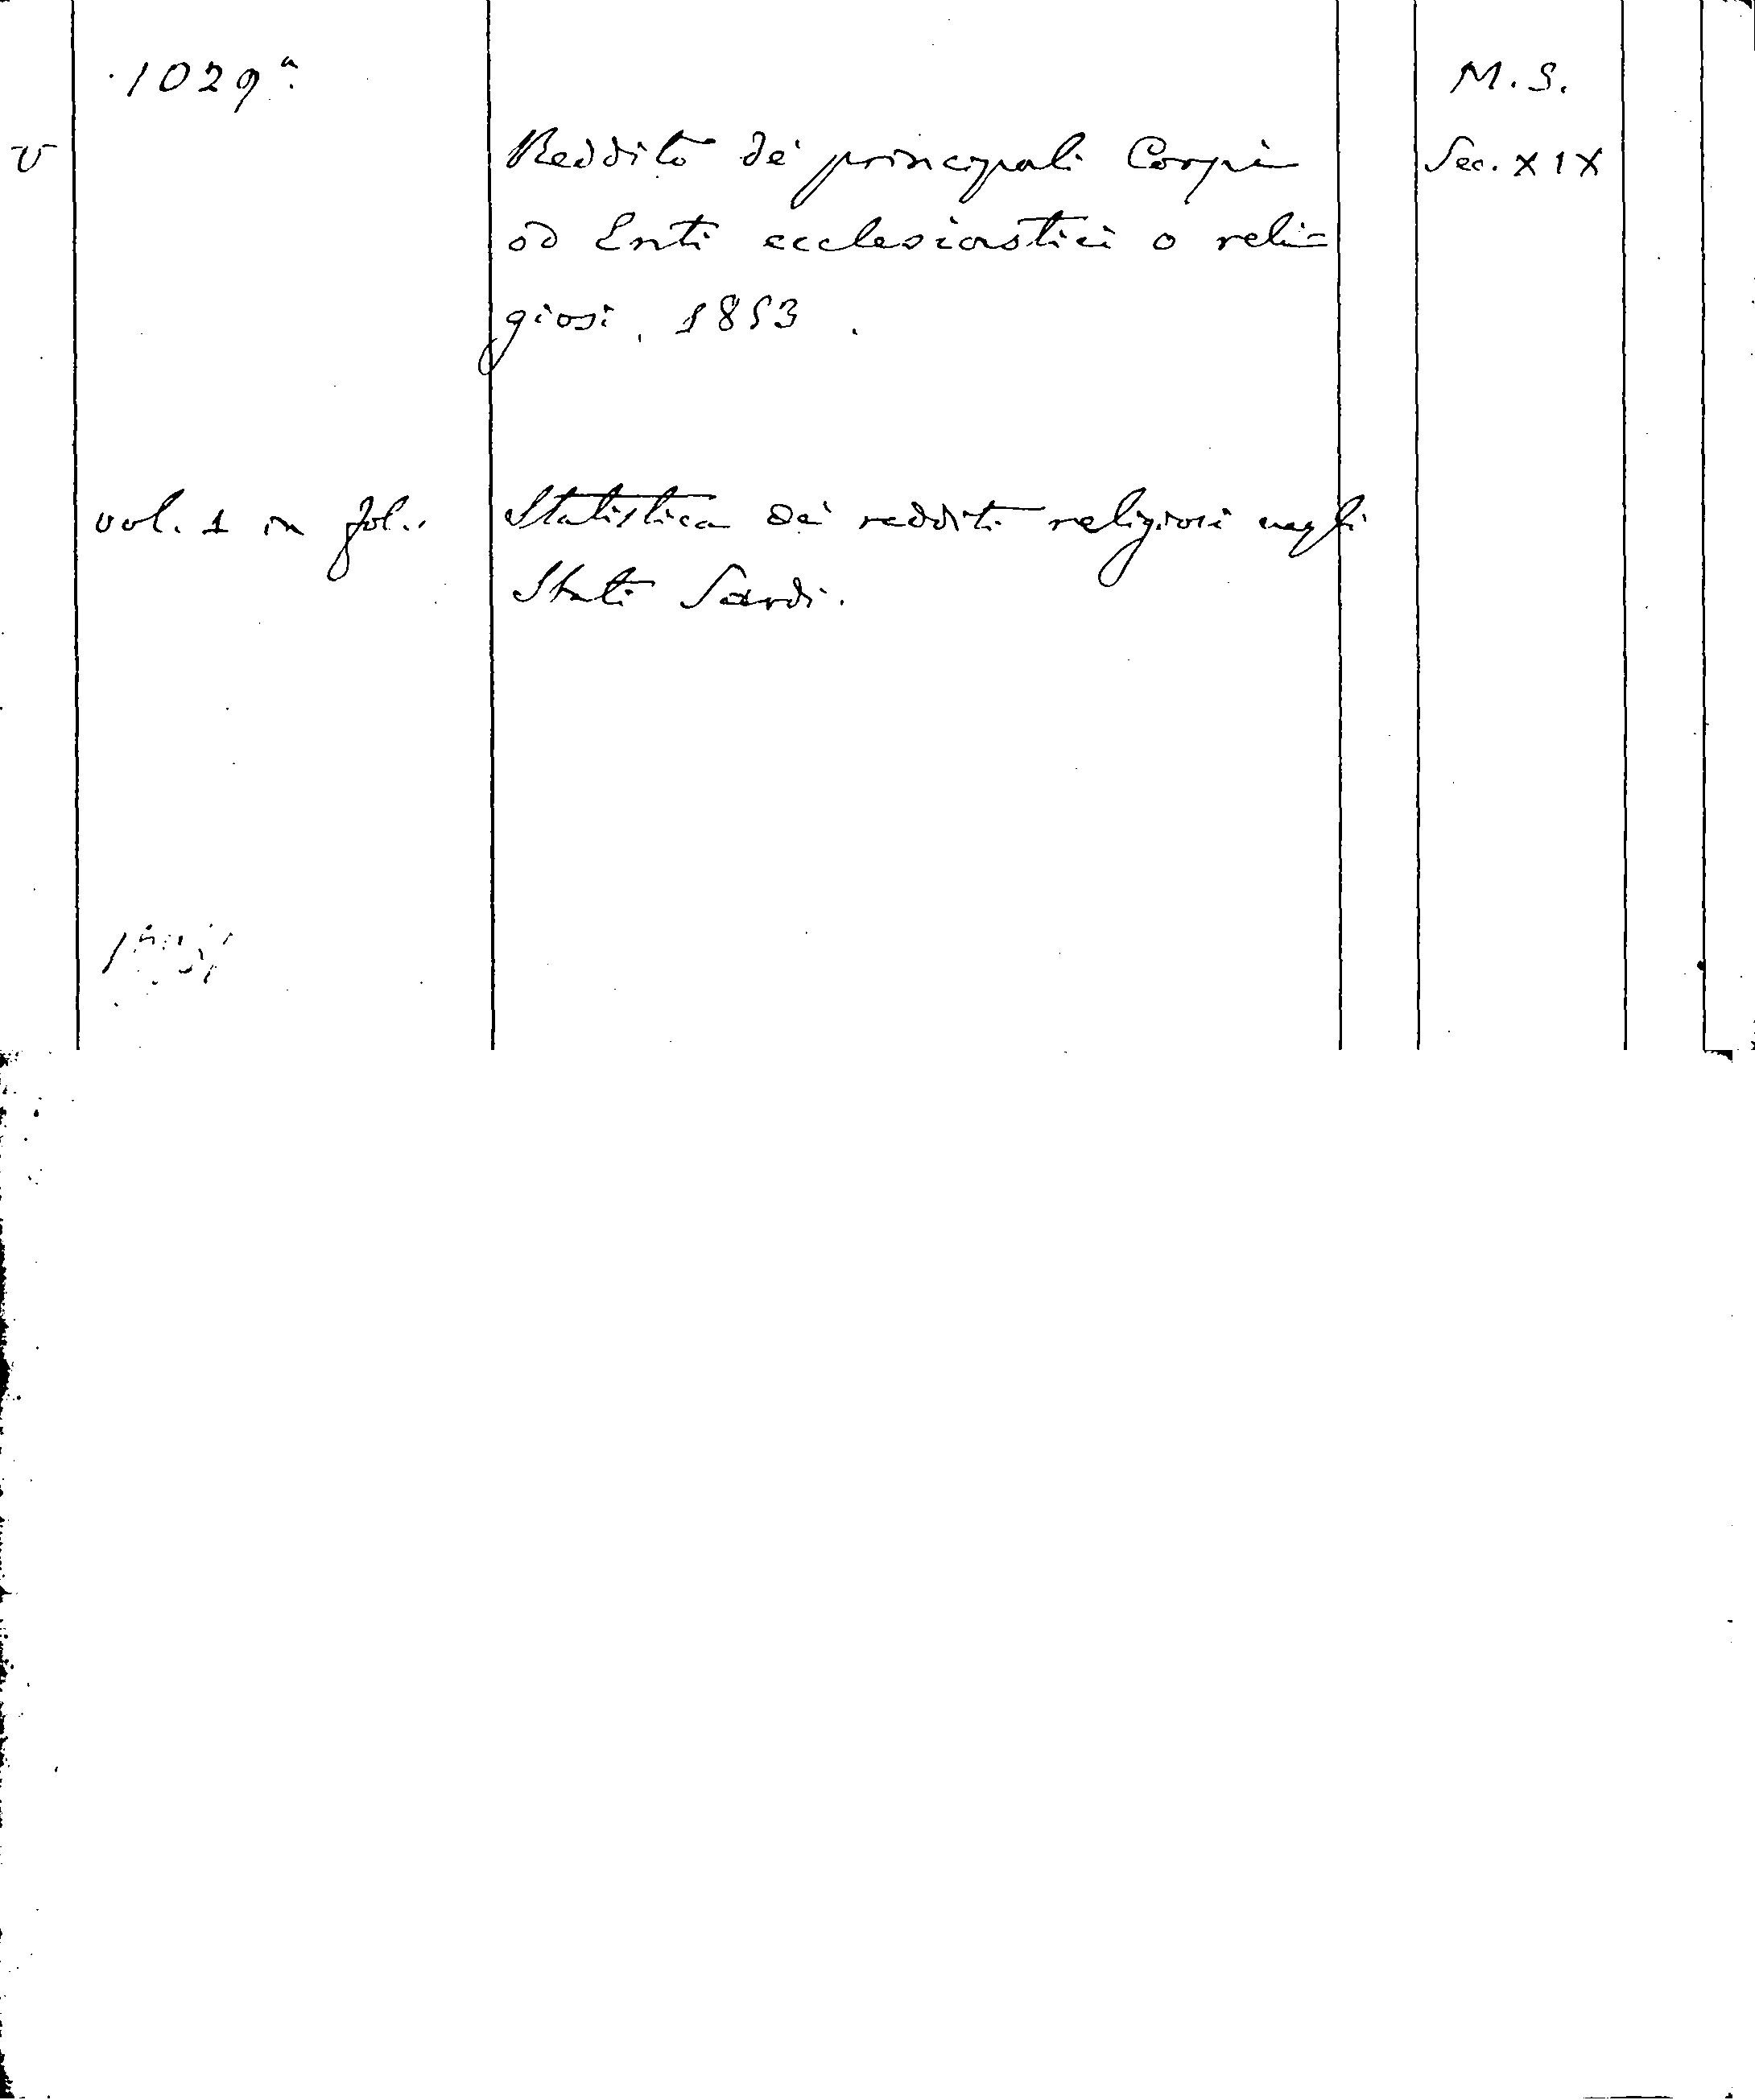 1029ª. M.S.
v Reddito dei principali Corpi Sec. XIX
od Enti ecclesiastici o reli=
giosi. 1853.
vol. 1 in fol.. Statistica dei redditi religiosi negli
Stati Sardi.